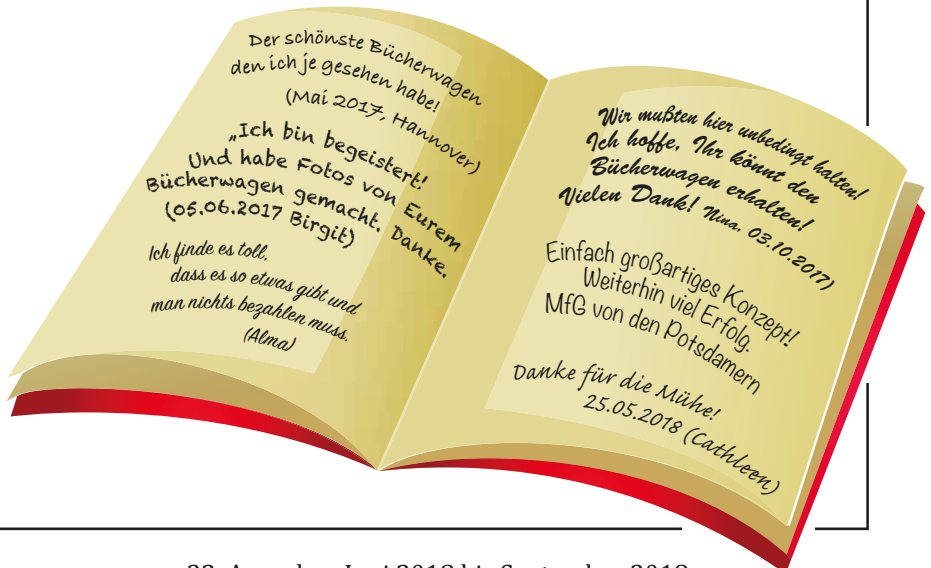 Der schönste Bücherwagen
den ich je gesehen habe!
(Mai 2017, Hannover)
„Ich bin begeistert!
Und habe Fotos von Eurem
Bücherwagen gemacht. Danke.
(05.06.2017 Birgit)
Ich finde es toll,
dass es so etwas gibt und
man nichts bezahlen muss.
(Alma)
Wir mußten hier unbedingt halten!
Ich hoffe, Ihr könnt den
Bücherwagen erhalten!
Vielen Dank! Nina, 03.10.2017)
Einfach großartiges Konzept!
Weiterhin viel Erfolg.
MfG von den Potsdamern
Danke für die Mühe!
25.05.2018 (Cathleen)
Juni 2018 bis September 2018